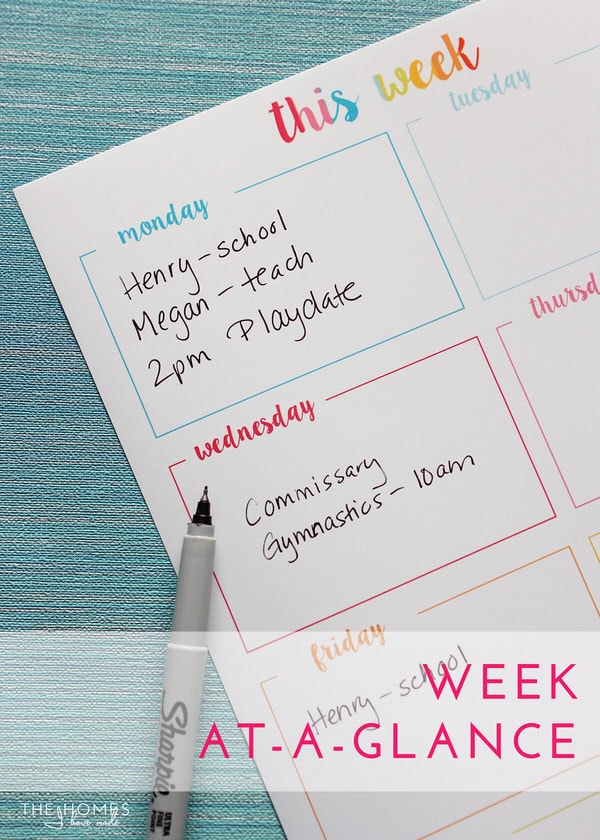 this week
monday
Henry - school
Megan - teach
2pm Playdate
tuesday
wednesday
Commissary
Gymnastics - 10am
thursd
friday
Henry - school
WEEK
AT-A-GLANCE
Sharpie
ULTRA
FINE
POINT
THE HOMES
have made